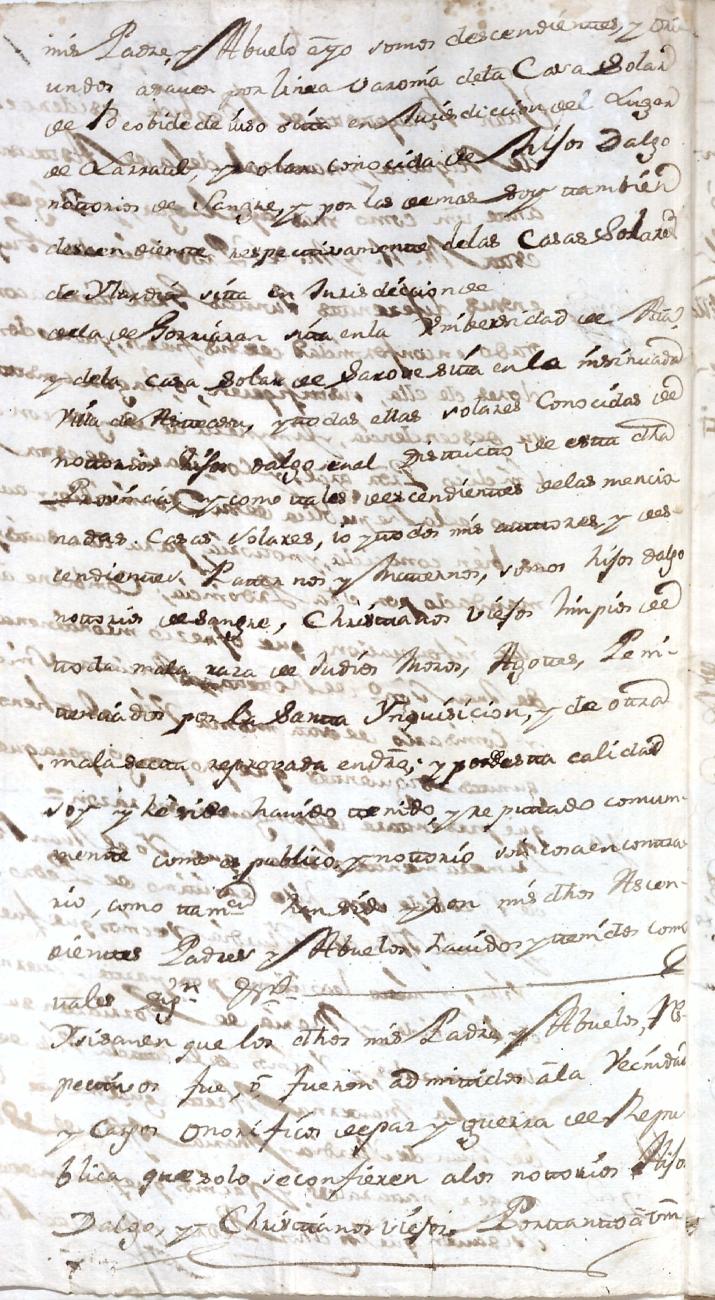 mis Padre, y Abuelo e yo somos descendientes, y Ori
undos por linea varonia dela Casa Solar
de Recobide de uso sita en Jurisdiccion del Lugar
de Larraul, y solar conocida de hijos Dalgo
nottorios de Sangre, y por las demas soy ttambien
descendiente respectivamente delas Casas Solares
de sita en Jurisdiccion de
dela de Gorriaran sita enla Vnibersidad de
y dela casa Solar de Sarove sita en la insinuada
Villa de Asteasu, y ttodas ellas solares Conocidas de
nottorios hijos dalgo enel Districto de esta dha
Provincia, y como ttales descendientes delas mencio
nadas Casas solares, io y ttodos mis auttores, y des-
cendientes Patternos y Matternos, somos hijos dalgo
nottorios de sangre, Christianos viejos limpios de
ttoda mala raza de Judios Moros, Agottes, Peni-
tenciados por la Santa Ynquisicion, y de ottra
mala secta reprovada endro; y por de esta calidad
soy y he sido havido ttenido, y reputtado comun-
mente como es publico, y nottorio sin cosa en contra
rio, como ttamvn han sido y son mis dhos Ascen-
dientes Padres y Abuelos havidos y ttenidos como
ttales
Yttsaven que los dhos mis Padre y Abuelos, Res-
pectivos fue, o fueron admitidos a la Vecindad
y Cargos onorificos de paz y guerra de Repu
blica que solo se confieren a los nottorios Hijos
Dalgo, y Christianos viejos. Porttantto a Vm